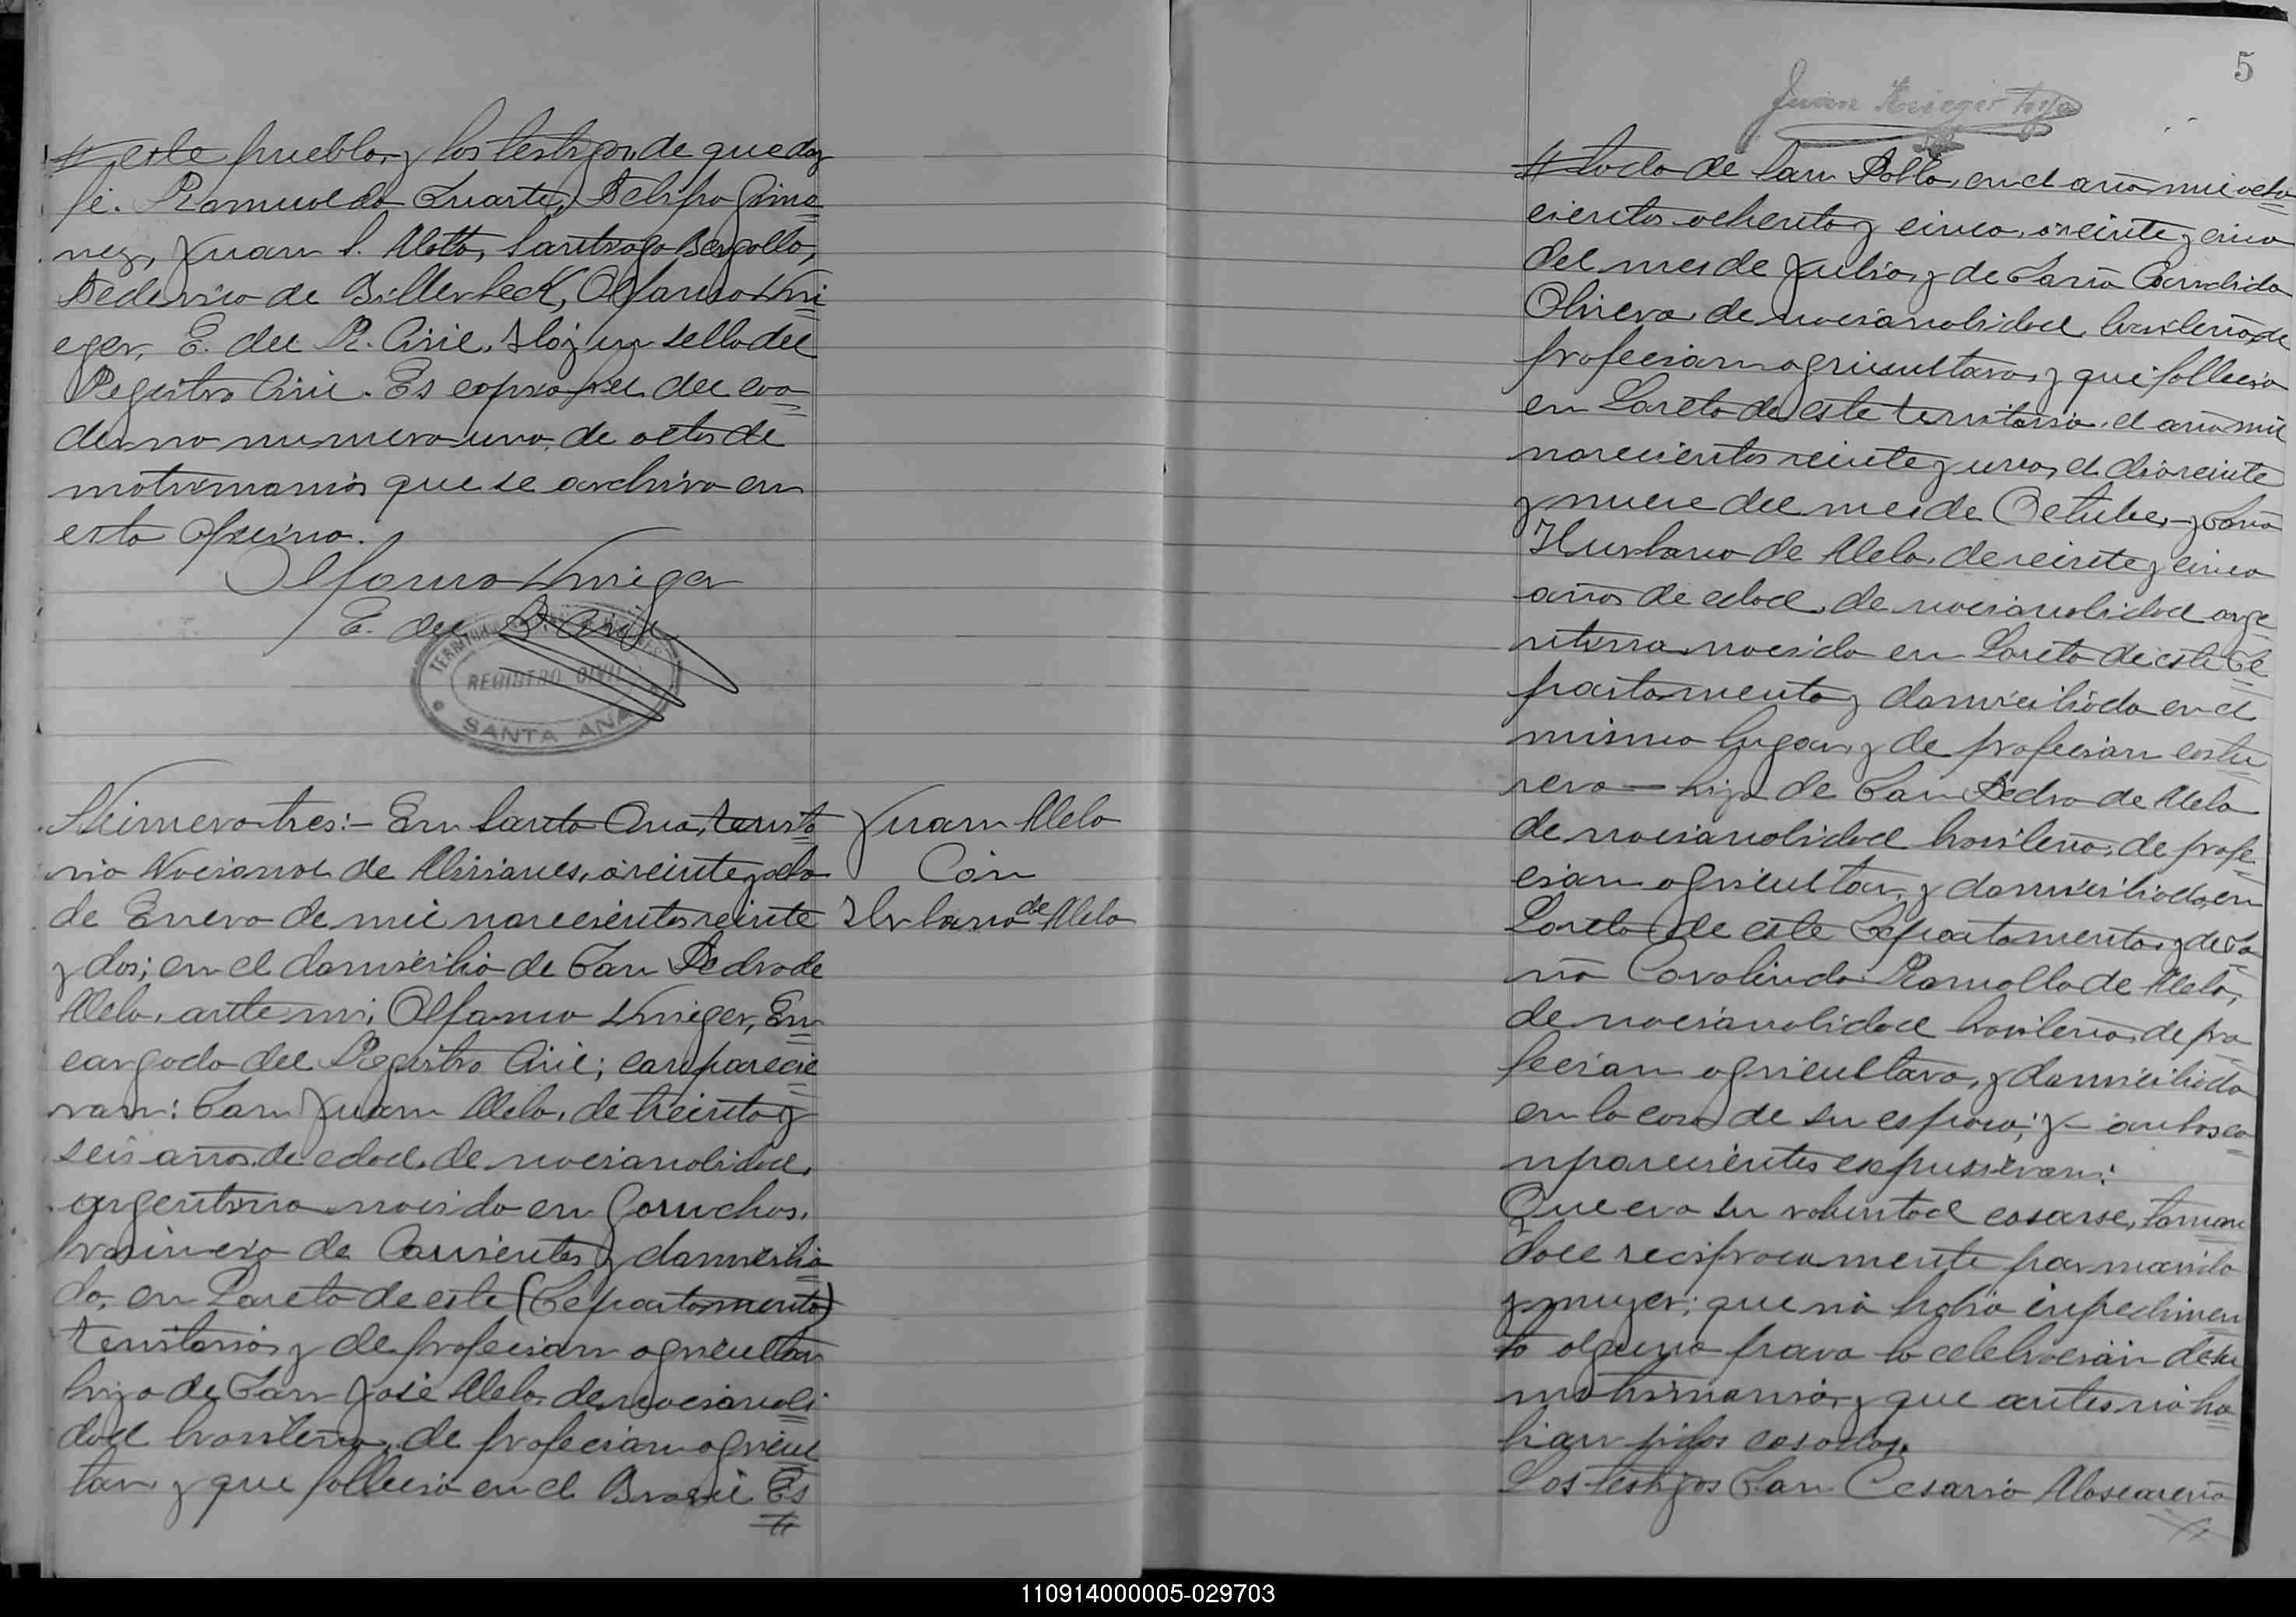 este pueblo, y los testigos, de que doy
fé. Romualdo Duarte, Delfro Gime
nez, Juan S. Motta, Santiago Bergallo,
Federico de Billerbeck, Alfonso Kri
eger, E. del R. Civil. Hay un sello del
Registro Civil. Es copia fiel del cua
derno numero uno, de actos de
matrimonios que se archiva en
esta Oficina.
Alfonso Krieger
E. del R. Civil
TERRITORIO
REGISTRO CIVIL
SANTA ANA
Número tres:- En Santa Ana, territo
rio Nacional de Misiones, á veinte y ocho
de Enero de mil novecientos veinte
y dos; en el domicilio de Don Pedro de
Melo, ante mi, Alfonso Krieger, En
cargado del Registro Civil; comparecie
ron: Don Juan Melo, de treinta y
seis años de edad, de nacionalidad
argentino nacido en Garruchos,
provincia de Corrientes y domicilia
do, en Loreto de este (Departamento)
territorio, y de profecion agricultor
hijo de Don José Melo, de nacionali
dad brasilero, de profecion agricul
tor y que falleció en el Brasil Es
Juan Melo
Con
Urbana de Melo
5
Juan Krieger hijo
tado de San Pablo, en el año mil ocho
cientos ochenta y cinco, á veinte y cinco
del mes de Julio, y de Doña Candida
Olivera, de nacionalidad brasilera, de
profecion agricultora, y que falleció
en Loreto de este territorio, el año mil
novecientos veinte y uno, el dia veinte
y nueve del mes de Octubre, y Doña
Urbana de Melo, de veinte y cinco
años de edad, de nacionalidad arge
ntina nacida en Loreto de este De
partamento y domiciliada en el
mismo lugar, y de profecion costu
rera — hija de Don Pedro de Melo
de nacionalidad brasilero, de profe
cion agricultor, y domiciliado, en
Loreto de este Departamento, y de Do
ña Carolinda Ramalla de Melo,
de nacionalidad brasilera, de pro
fecion agricultora, y domiciliada
en la casa de su esposo; y - ambos co
mparecientes expusieron:
Que era su voluntad casarse, toman
dose reciprocamente por marido
y mujer; que nó había impedimen
to alguno para la celebración de su
matrimonio, y que antes nó ha
bían sidos casados.
Los testigos Don Cesario